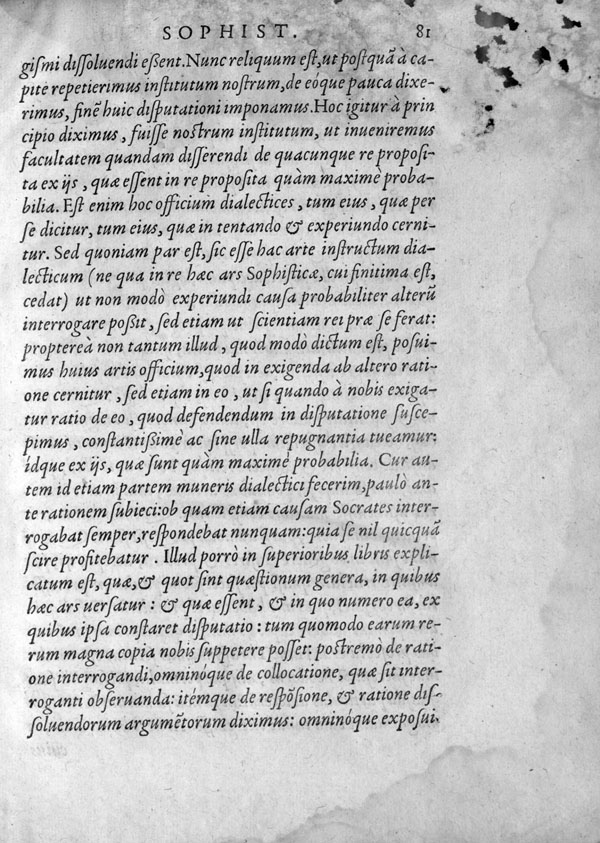 SOPHIST. 81
giſmi diſſoluendi eßent. Nunc reliquum eſt, ut poſtquã à ca-
pite repetierimus inſtitutum noſtrum, de eóque pauca dixe-
rimus, finẽ huic diſputationi imponamus. Hoc igitur à prin
cipio diximus, fuiſſe noſtrum inſtitutum, ut inueniremus
facultatem quandam diſſerendi de quacunque re propoſi-
ta ex ijs, quæ eſſent in re propoſita quàm maximè proba-
bilia. Eſt enim hoc officium dialectices, tum eius, quæ per
ſe dicitur, tum eius, quæ in tentando & experiundo cerni-
tur. Sed quoniam par eſt, ſic eſſe hac arte inſtructum dia-
lecticum (ne qua in re hæc ars Sophiſticæ, cui finitima eſt,
cedat) ut non modò experiundi cauſa probabiliter alterũ
interrogare poßit, ſed etiam ut ſcientiam rei præ ſe ferat:
proptereà non tantum illud, quod modò dictum eſt, poſui-
mus huius artis officium, quod in exigenda ab altero rati-
one cernitur, ſed etiam in eo, ut ſi quando à nobis exiga-
tur ratio de eo, quod defendendum in diſputatione ſuſce-
pimus, conſtantißimè ac ſine ulla repugnantia tueamur:
ídque ex ijs, quæ ſunt quàm maximè probabilia. Cur au-
tem id etiam partem muneris dialectici fecerim, paulò an-
te rationem ſubieci: ob quam etiam cauſam Socrates inter-
rogabat ſemper, reſpondebat nunquam: quia ſe nil quicquã
ſcire profitebatur. Illud porrò in ſuperioribus libris expli-
catum eſt, quæ, & quot ſint quæſtionum genera, in quibus
hæc ars uerſatur: & quæ eſſent, & in quo numero ea, ex
quibus ipſa conſtaret diſputatio: tum quomodo earum re-
rum magna copia nobis ſuppetere poſſet: poſtremò de rati-
one interrogandi, omninóque de collocatione, quæ ſit inter-
roganti obſeruanda: itémque de reſpõſione, & ratione diſ-
ſoluendorum argumẽtorum diximus: omninóque expoſui-